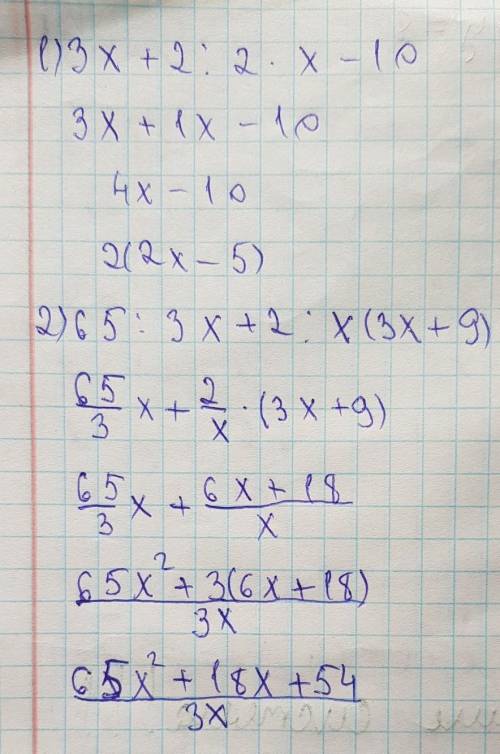 1) 3x + 2 : 2 · x - 10
3x + 1x - 10
4x - 10
2(2x - 5)
2) 65 : 3x + 2 : x(3x + 9)
65/3 x + 2/x · (3x + 9)
65/3 x + (6x + 18)/x
(65x² + 3(6x + 18))/3x
(65x² + 18x + 54)/3x